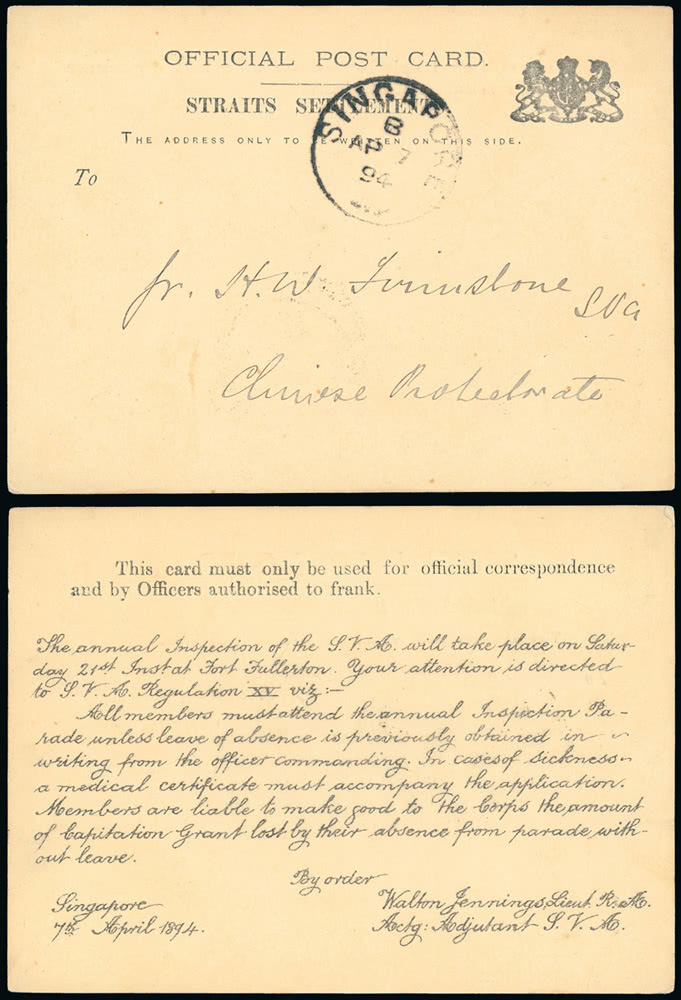 OFFICIAL POST CARD.
STRAITS SETTLEMENTS
THE ADDRESS ONLY TO BE WRITTEN ON THIS SIDE.
SINGAPORE
B
AP 7
94
To
H. W.
S V A
Chinese Protectorate
This card must only be used for official correspondence
and by Officers authorised to frank.
The annual Inspection of the S. V. A. will take place on Satur-
day 21st Inst at Fort Fullerton. Your attention is directed
to S. V. A. Regulation XV viz:-
All members must attend the annual Inspection Pa-
rade unless leave of absence is previously obtained in
writing from the officer commanding. In cases of sickness
a medical certificate must accompany the application.
Members are liable to make good to the Corps the amount
of Capitation Grant lost by their absence from parade with-
out leave.
By order
Singapore
7th April 1894.
Walton Jennings, Lieut. R. A.
Actg: Adjutant S. V. A.